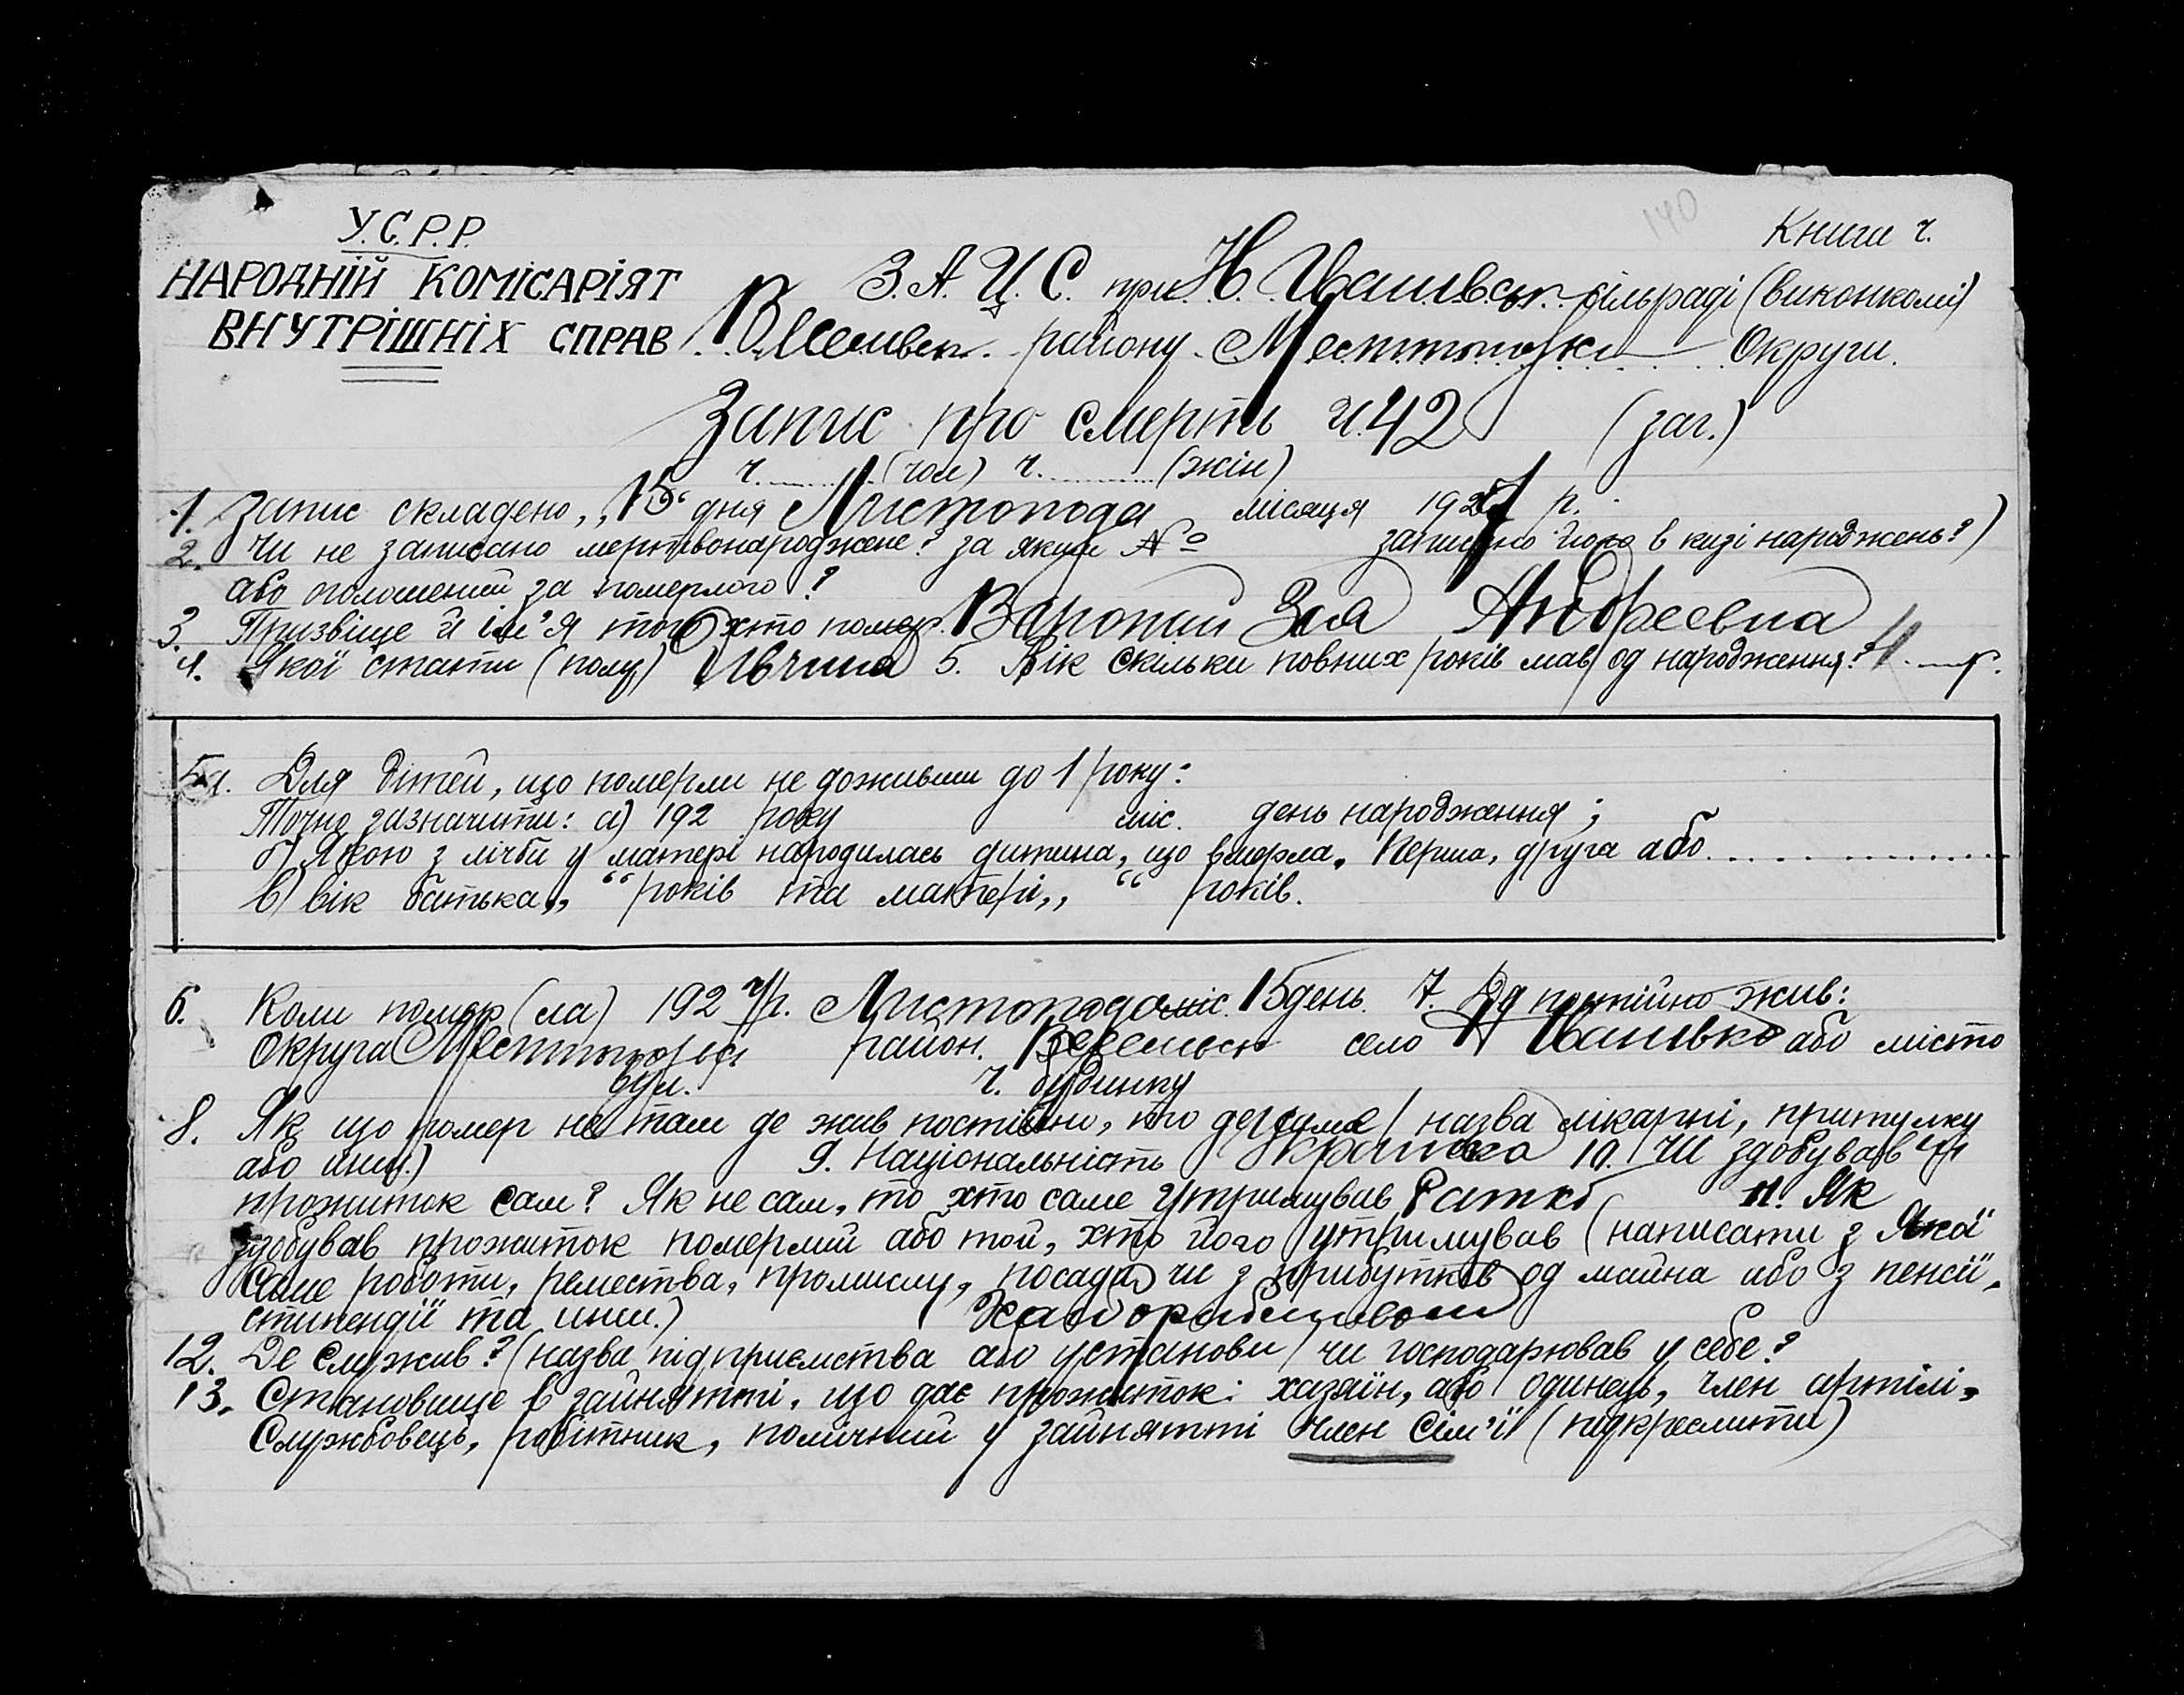 140
Книги ч.
У.С.Р.Р.
НАРОДНІЙ КОМІСАРІЯТ
ВНУТРІШНІХ СПРАВ
З.А.Ц.С. при Н. Івашвськ сільраді (виконкомі)
району Округи.
Запис про смерть ч. 42 (заг.)
ч. (чол) ч. (жін)
1. Запис складено „15“ дня Листопода місяця 1927 р.
2. Чи не записано мертвонароджене? за яким № записано його в кизі народжень?)
або оголошений за померлого?
3. Призвіще й ім'я того хто помер. Воропай Зоя Андреевна
4. Якої статі (полу) 5. Вік скільки повних років мав од народження? 4 р.
5а. Для дітей, що померли не доживши до 1 року:
Точно зазначити: а) 192 року міс. день народження;
б) Якою з лічби у матері народилась дитина, що вмерла. Перша, друга або
в) вік батька „ “ років та матері „ “ років.
6. Коли помер (ла) 1927 р. Листопода міс. 15 день. 7. Де постійно жив:
Округа район. село Н Івашвка або місто
вул. ч. будинку
8. Як що помер не там де жив постійно, то де саме (назва лікарні, притулку
або инш.) 9. Національність Українка 10. Чи здобував
прожиток сам? Як не сам, то хто саме утримував Батько 11. Як
здобував прожиток померлий або той, хто його утримував (написати з Якої
саме роботи, ремества, промислу, посади, чи з прибутків од майна або з пенсії,
стипендії та инш.) Хліборобством
12. Де служив? (назва підприємства або установи) чи господарював у себе?
13. Становище в зайнятті, що дає прожиток: хазяїн, або одинець, член артілі,
Службовець, робітник, помічний у зайнятті член сім'ї (підкреслити)